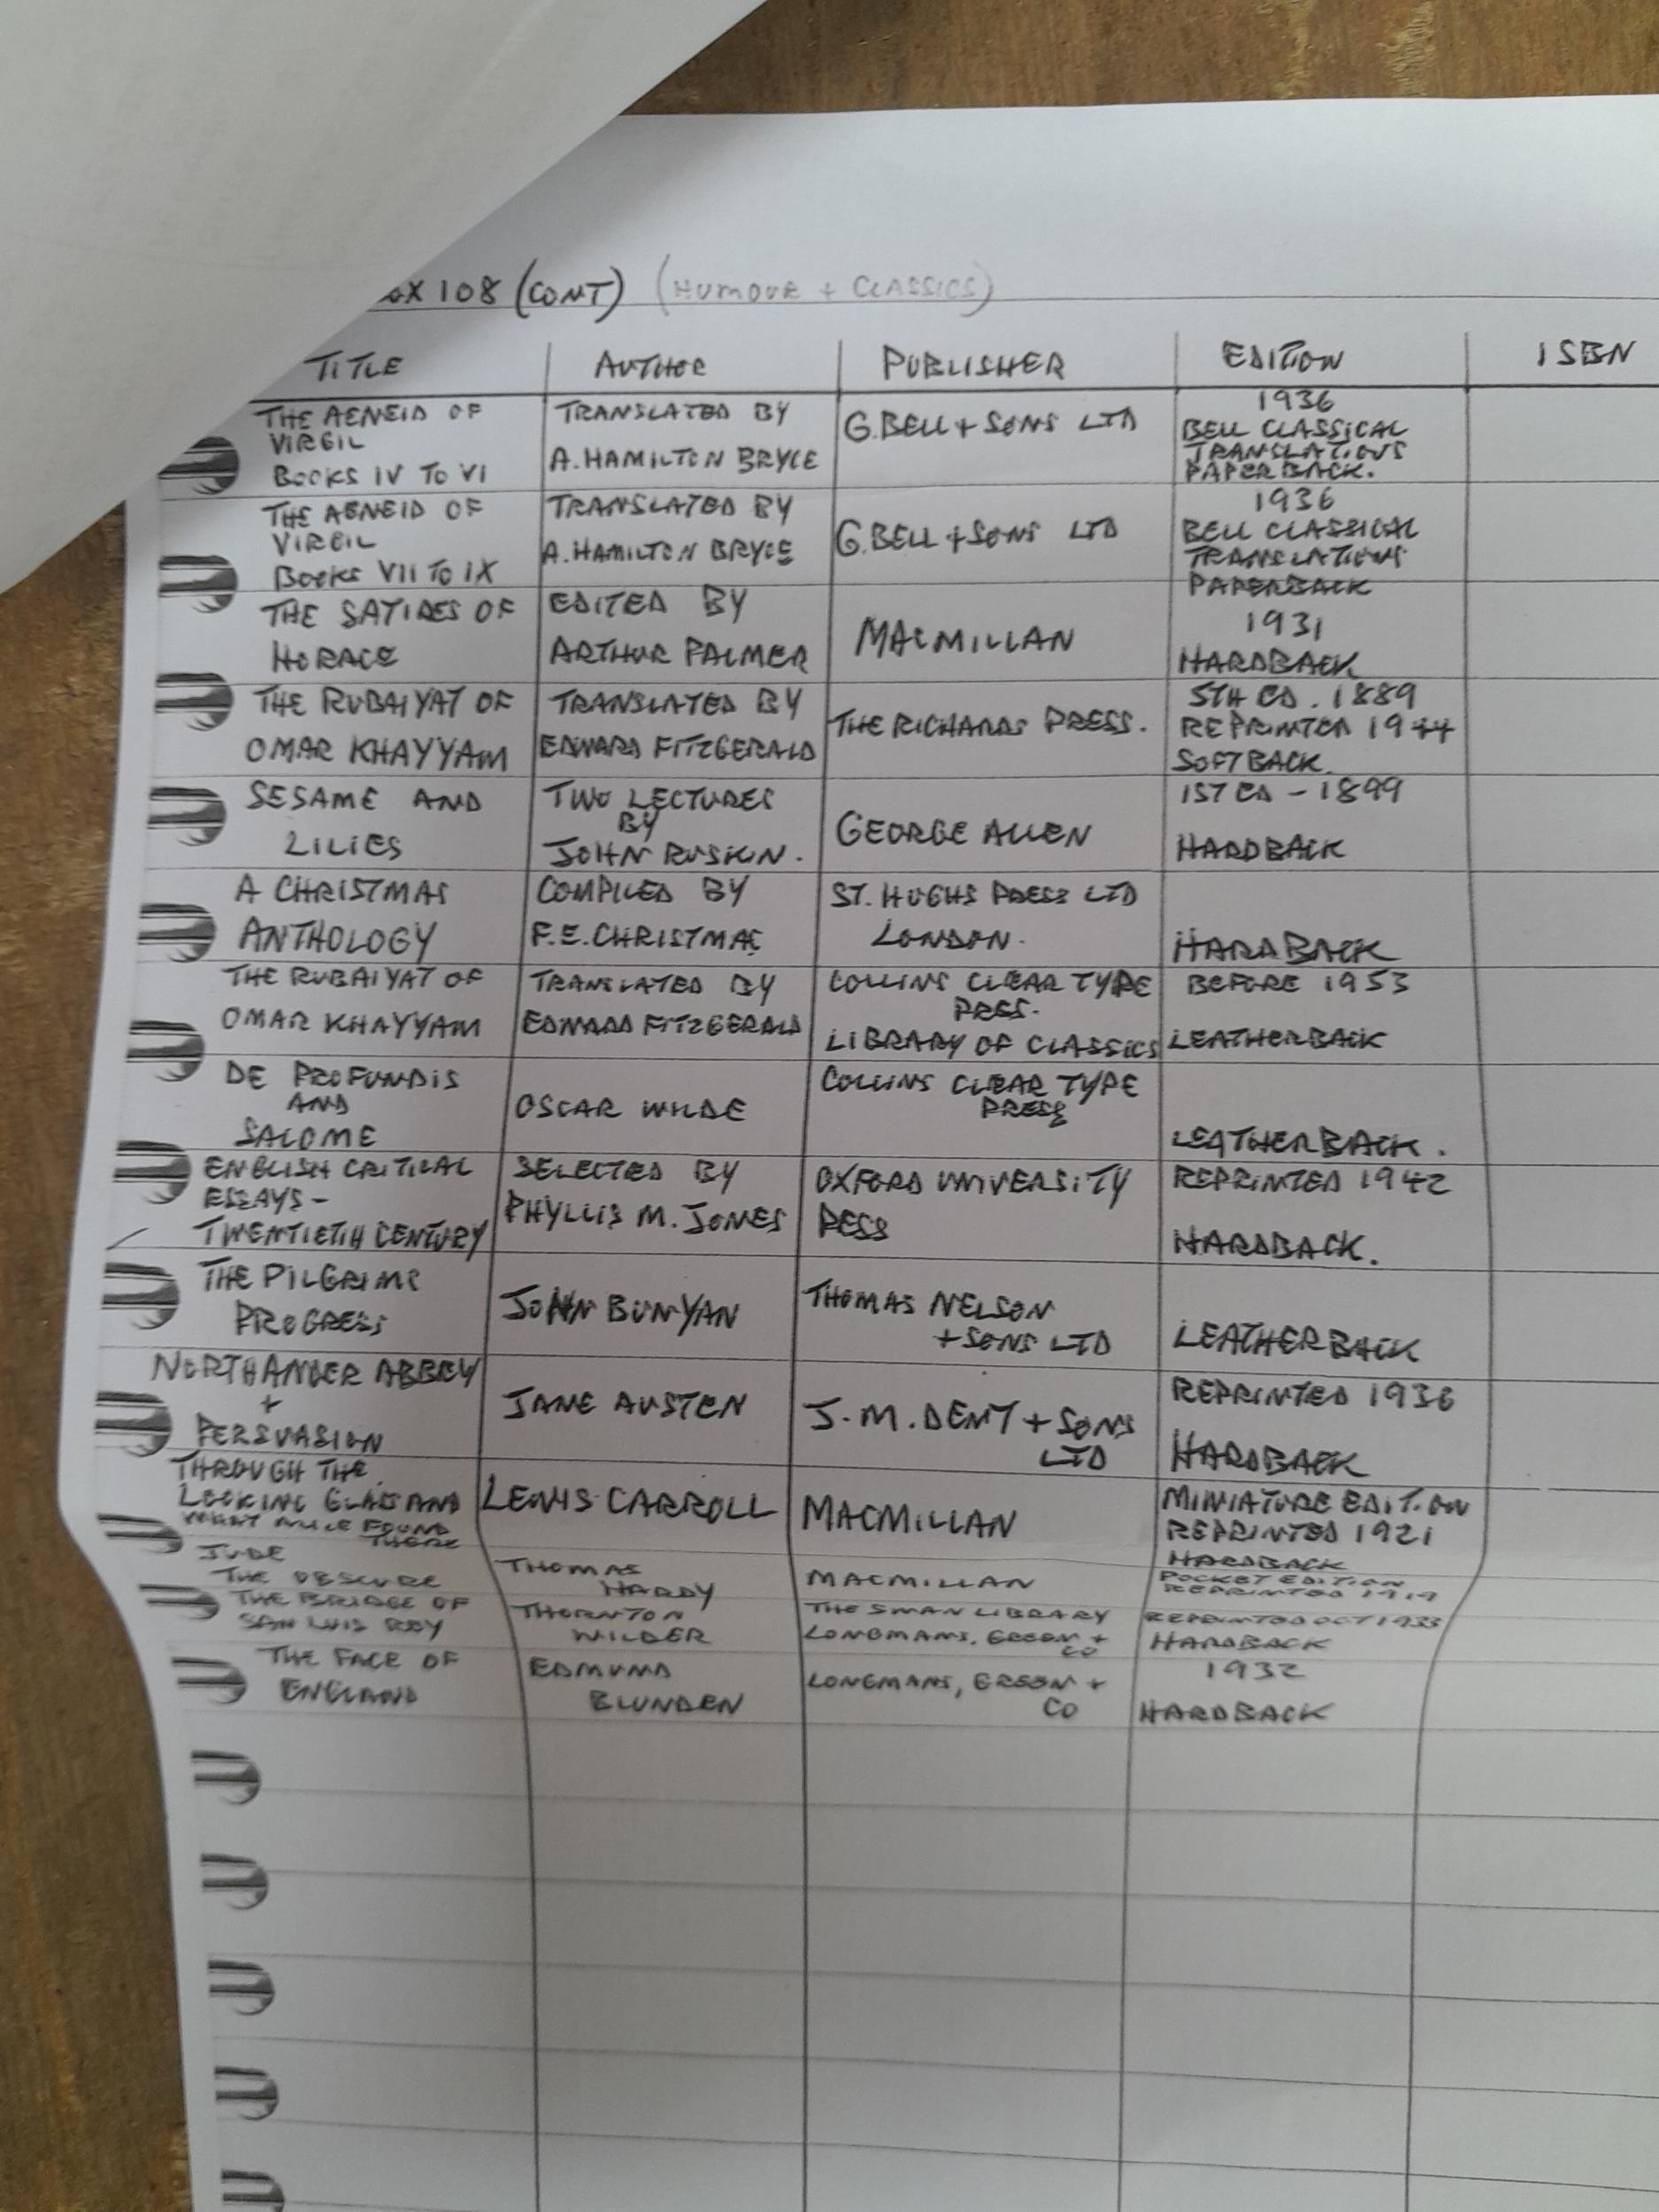 OX 108 (CONT) (HUMOUR + CLASSICS)
TITLE AUTHOR PUBLISHER EDITION ISBN
THE AENEID OF
VIRGIL
BOOKS IV TO VI
TRANSLATED BY
A. HAMILTON BRYCE
G. BELL + SONS LTD
1936
BELL CLASSICAL
TRANSLATIONS
PAPERBACK.
THE AENEID OF
VIRGIL
BOOKS VII TO IX
TRANSLATED BY
A. HAMILTON BRYCE
G. BELL + SONS LTD
1936
BELL CLASSICAL
TRANSLATIONS
PAPERBACK
THE SATIRES OF
HORACE
EDITED BY
ARTHUR PALMER
MACMILLAN
1931
HARDBACK
THE RUBAIYAT OF
OMAR KHAYYAM
TRANSLATED BY
EDWARD FITZGERALD
THE RICHARDS PRESS.
5TH ED. 1889
REPRINTED 1944
SOFTBACK.
SESAME AND
LILIES
TWO LECTURES
BY
JOHN RUSKIN.
GEORGE ALLEN
1ST ED - 1899
HARDBACK
A CHRISTMAS
ANTHOLOGY
COMPILED BY
F.E. CHRISTMAS
ST. HUGHS PRESS LTD
LONDON.
HARDBACK
THE RUBAIYAT OF
OMAR KHAYYAM
TRANSLATED BY
EDWARD FITZGERALD
COLLINS CLEAR TYPE
PRESS.
LIBRARY OF CLASSICS
BEFORE 1953
LEATHERBACK
DE PROFUNDIS
AND
SALOME
OSCAR WILDE
COLLINS CLEAR TYPE
PRESS
LEATHERBACK.
ENGLISH CRITICAL
ESSAYS -
TWENTIETH CENTURY
SELECTED BY
PHYLLIS M. JONES
OXFORD UNIVERSITY
PESS
REPRINTED 1942
HARDBACK.
THE PILGRIMS
PROGRESS
JOHN BUNYAN
THOMAS NELSON
+ SONS LTD
LEATHERBACK
NORTHANGER ABBEY
+
PERSUASION
JANE AUSTEN
J.M. DENT + SONS
LTD
REPRINTED 1936
HARDBACK
THROUGH THE
LOOKING GLASS AND
WHAT ALICE FOUND
THERE
LEWIS CARROLL
MACMILLAN
MINIATURE EDITION
REPRINTED 1921
HARDBACK
JUDE
THE OBSCURE
THOMAS
HARDY
MACMILLAN
POCKET EDITION
REPRINTED 1919
THE BRIDGE OF
SAN LUIS REY
THORNTON
WILDER
THE SWAN LIBRARY
LONGMANS, GREEN +
CO
REPRINTED OCT 1933
HARDBACK
THE FACE OF
ENGLAND
EDMUND
BLUNDEN
LONGMANS, GREEN +
CO
1932
HARDBACK